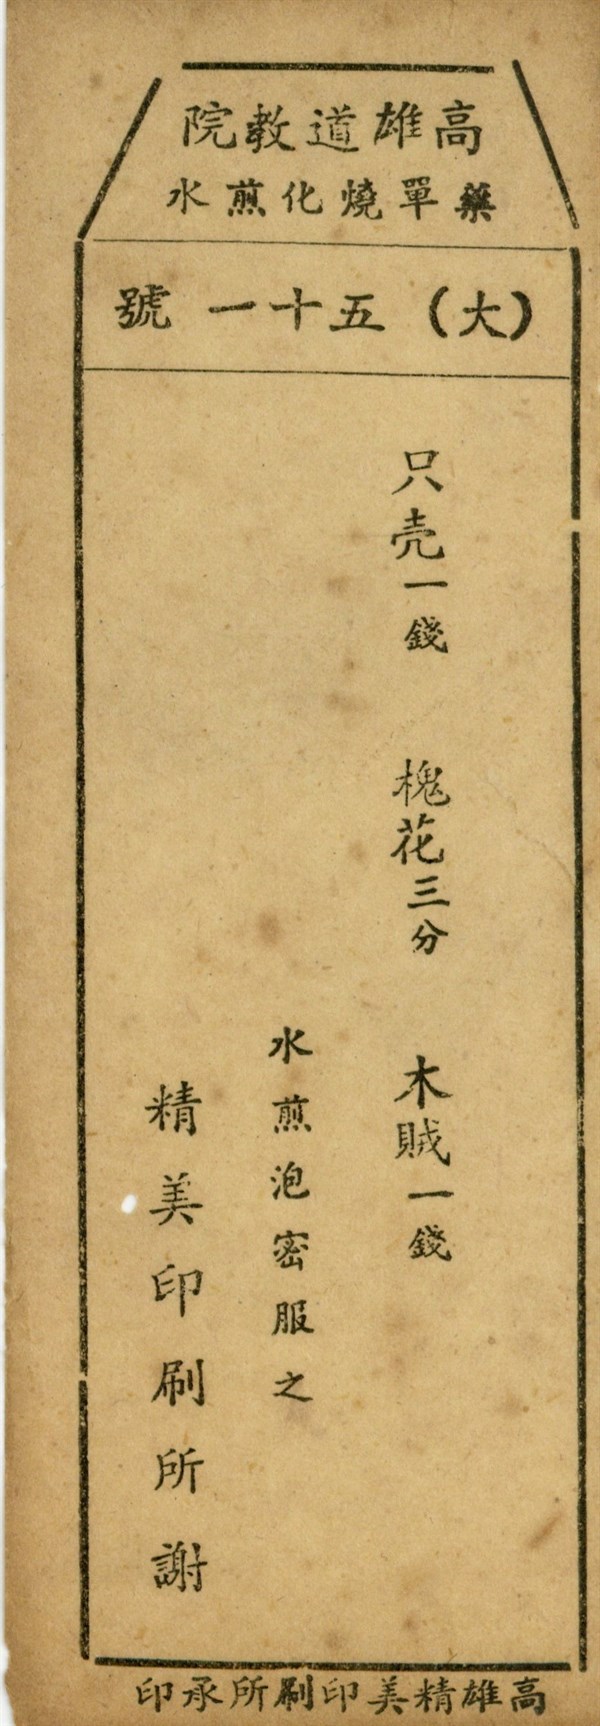 高雄道教院
藥單燒化煎水
（大）五十一號
只壳一錢　槐花三分　木賊一錢
水煎泡密服之
精美印刷所謝
高雄精美印刷所承印